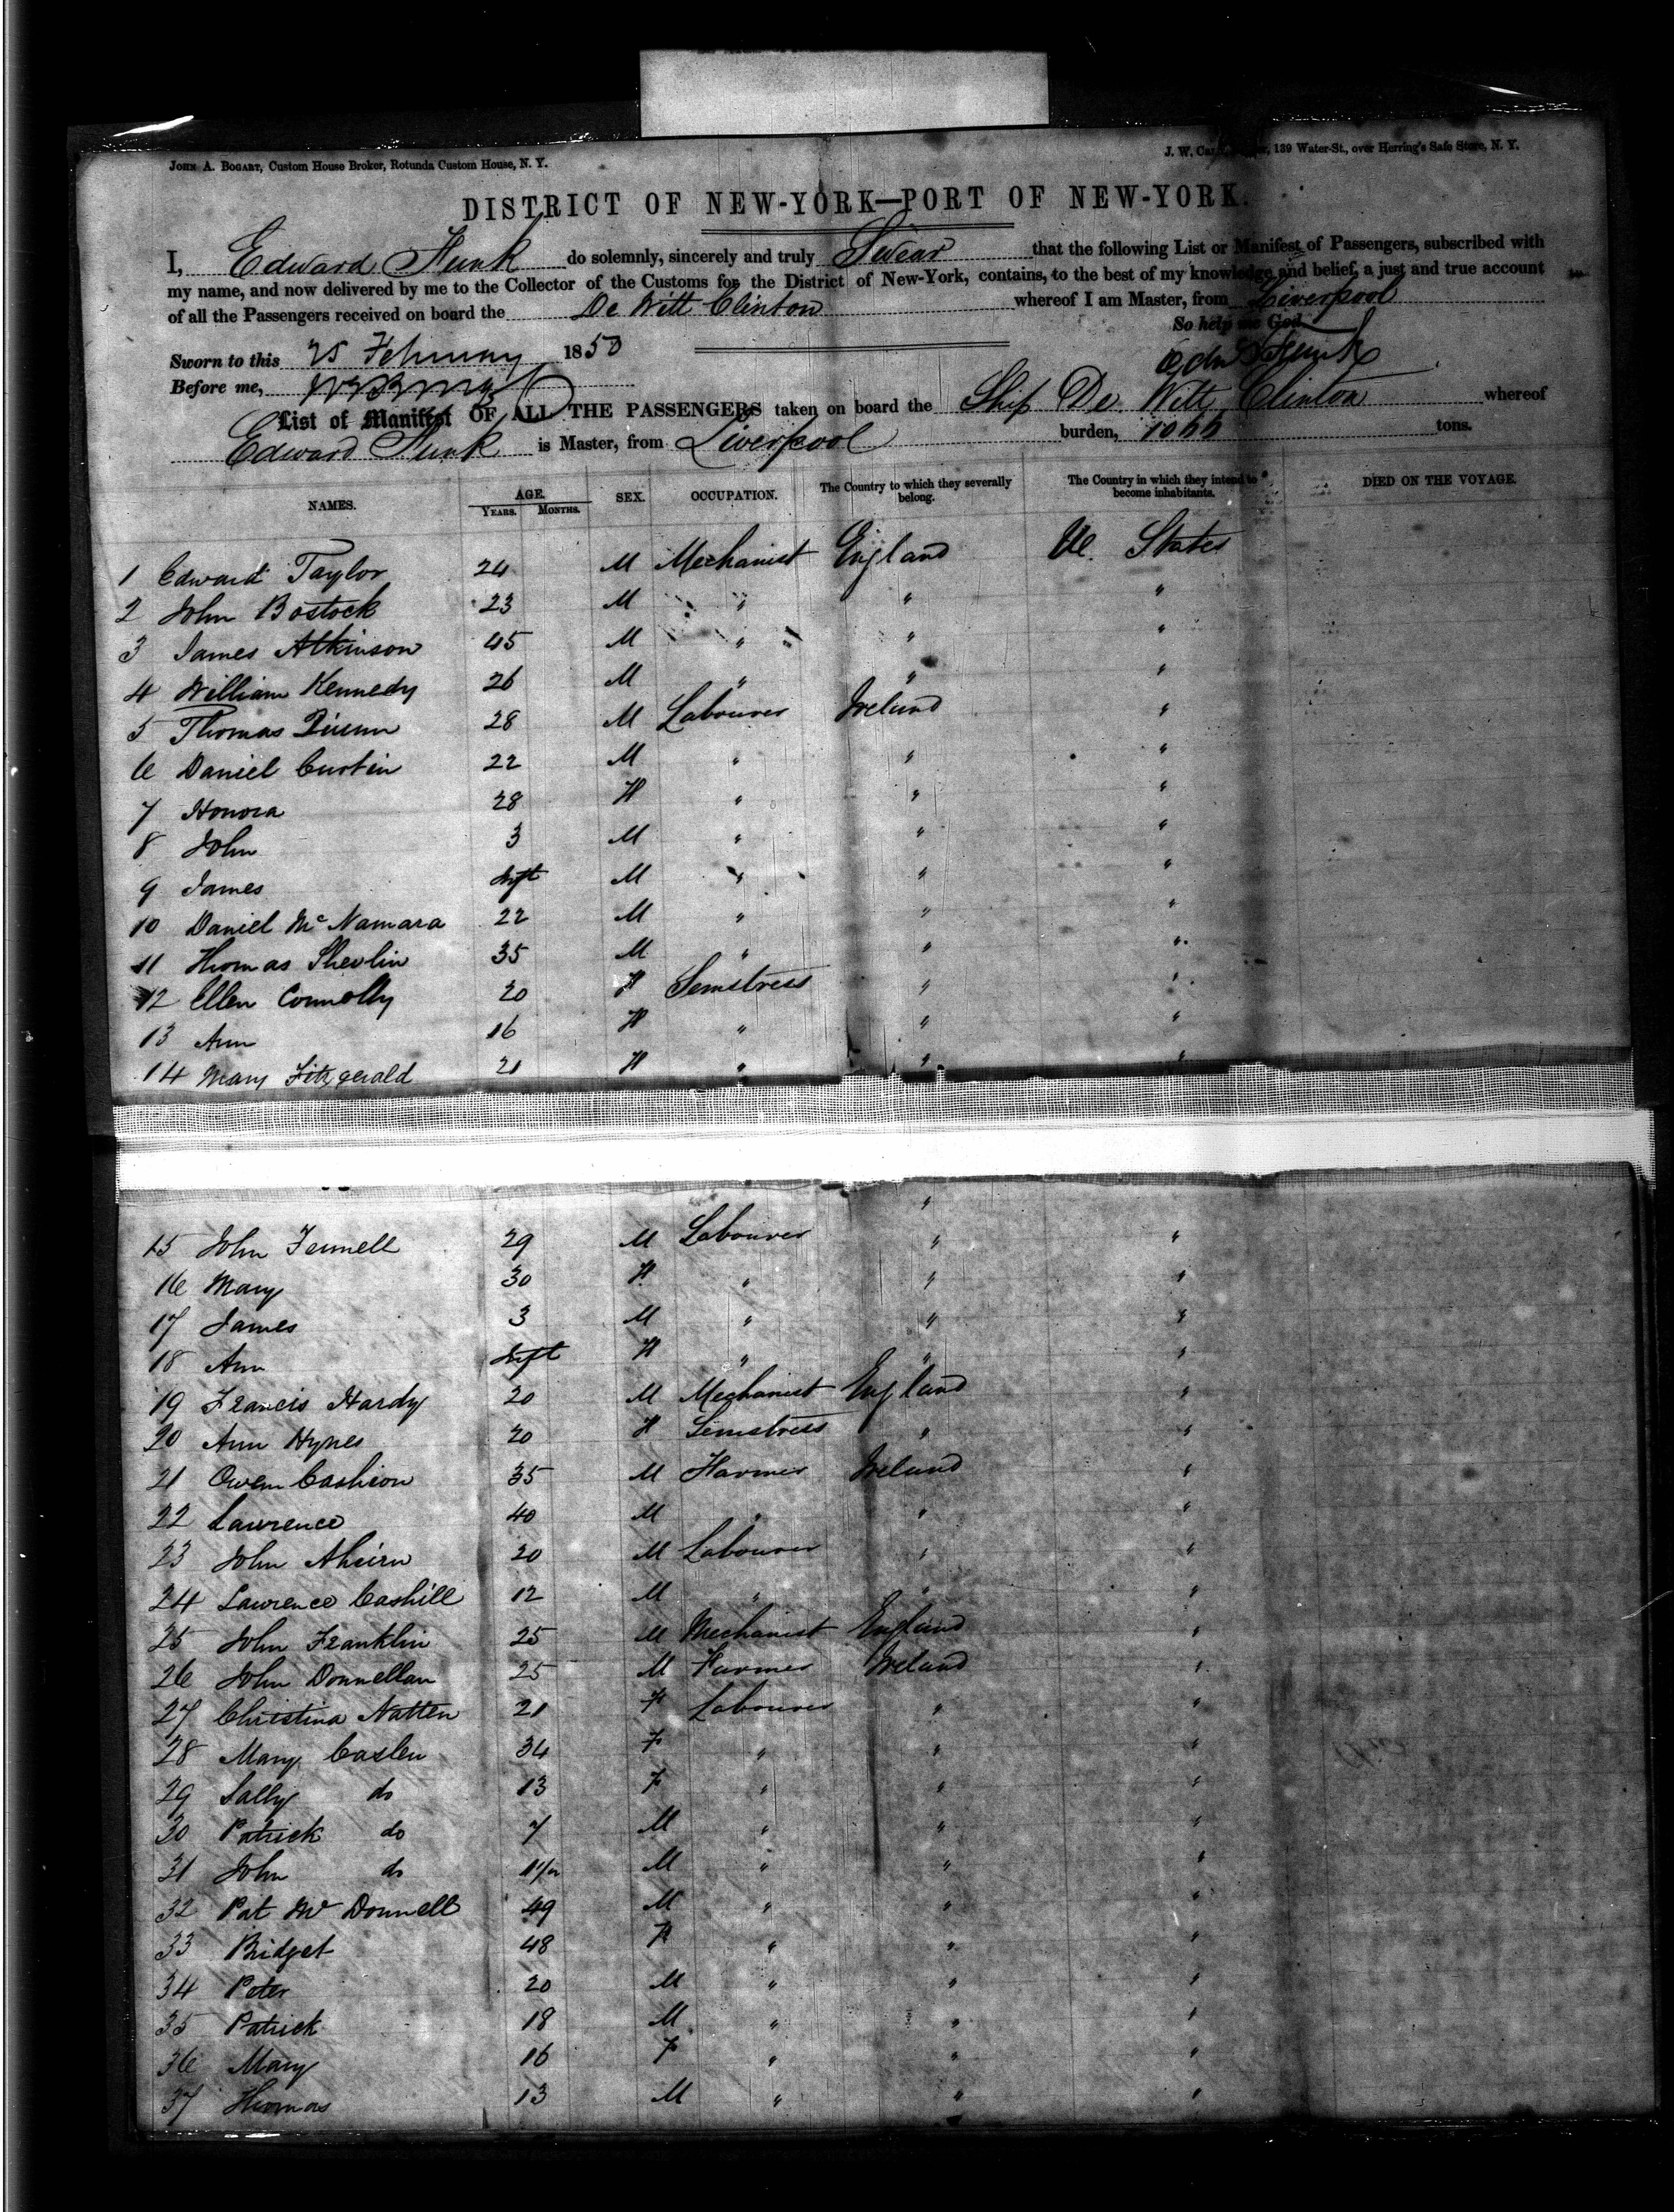 JOHN A. BOGART, Custom House Broker, Rotunda Custom House, N. Y.
J. W. 139 Water-St., over Herring's Safe Store, N. Y.
DISTRICT OF NEW-YORK—PORT OF NEW-YORK.
I, Edward Funk do solemnly, sincerely and truly Swear that the following List or Manifest of Passengers, subscribed with
my name, and now delivered by me to the Collector of the Customs for the District of New-York, contains, to the best of my knowledge and belief, a just and true account
of all the Passengers received on board the De Witt Clinton whereof I am Master, from Liverpool
So help me God
Sworn to this 25 February 1850
Edw Funk
Before me,
List of Manifest OF ALL THE PASSENGERS taken on board the Ship De Witt Clinton whereof
Edward Funk is Master, from Liverpool burden, tons.
NAMES. AGE. YEARS. MONTHS. SEX. OCCUPATION. The Country to which they severally belong. The Country in which they intend to become inhabitants. DIED ON THE VOYAGE.
1 Edward Taylor 24 M Mechanist England U. States
2 John Bostock 23 M " " "
3 James Atkinson 45 M " " "
4 William Kennedy 26 M " " "
5 Thomas Quinn 28 M Labourer Ireland "
6 Daniel Curtin 22 M " " "
7 Honora 28 F " " "
8 John 3 M " " "
9 James Inft M " " "
10 Daniel McNamara 22 M " " "
11 Thomas Shevlin 35 M " " "
12 Ellen Connolly 20 F Semstress " "
13 Ann 16 F " " "
14 Mary Fitzgerald 21 F " " "
15 John Fennell 29 M Labourer " "
16 Mary 30 F " " "
17 James 3 M " " "
18 Ann Inft F " " "
19 Francis Hardy 20 M Mechanist England "
20 Ann Hynes 20 F Semstress " "
21 Owen Cashion 35 M Farmer Ireland "
22 Lawrence 40 M " " "
23 John Aheirn 20 M Labourer " "
24 Lawrence Cashill 12 M " " "
25 John Franklin 25 M Mechanist England "
26 John Donnellan 25 M Farmer Ireland "
27 Christina Natten 21 F Labourer " "
28 Mary Caslen 34 F " " "
29 Sally do 13 F " " "
30 Patrick do 7 M " " "
31 John do M " " "
32 Pat Mc Donnell 49 M " " "
33 Bridget 48 F " " "
34 Peter 20 M " " "
35 Patrick 18 M " " "
36 Mary 16 F " " "
37 Thomas 13 M " " "